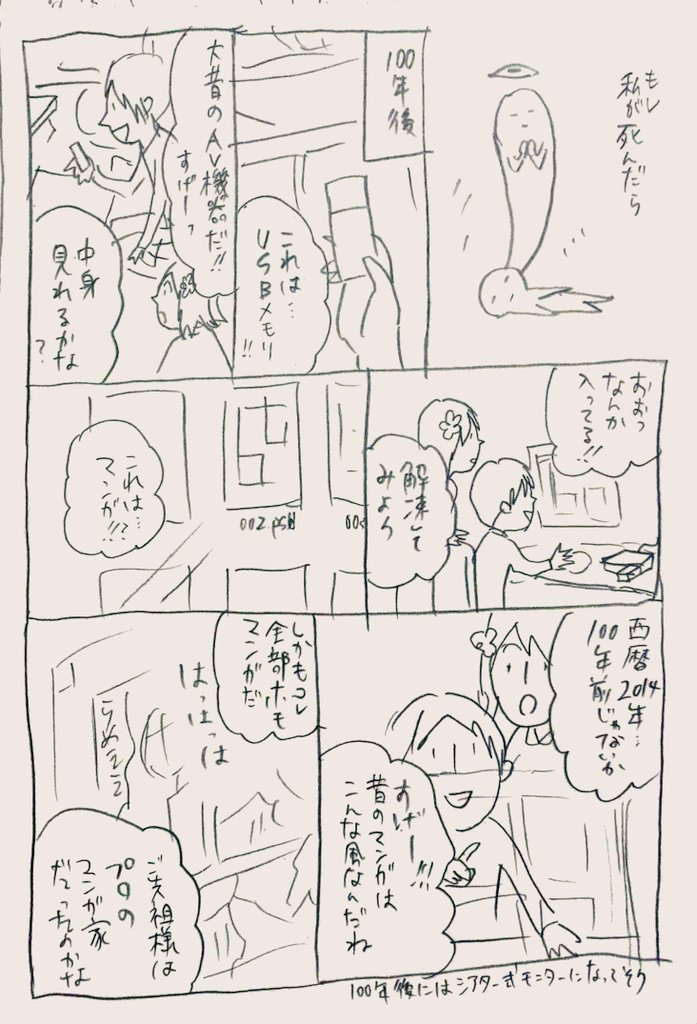 もし
私が
死んだら
100年後
これは…
USBメモリ
!!
大昔の
AV機器だ!!
すげーっ
中身
見れるかな
?
おおっ
なんか
入ってる!!
解凍して
みよう
002.psd
00
これは…
マンガ!!?
西暦2014年…
100年前じゃないか
すげー!!!
昔のマンガは
こんな風なんだね
100年後にはシアター式モニターになってそう
しかもコレ
全部ホモ
マンガだ
はっはっは
らめぇぇ
ご先祖様は
プロの
マンガ家
だったのかな